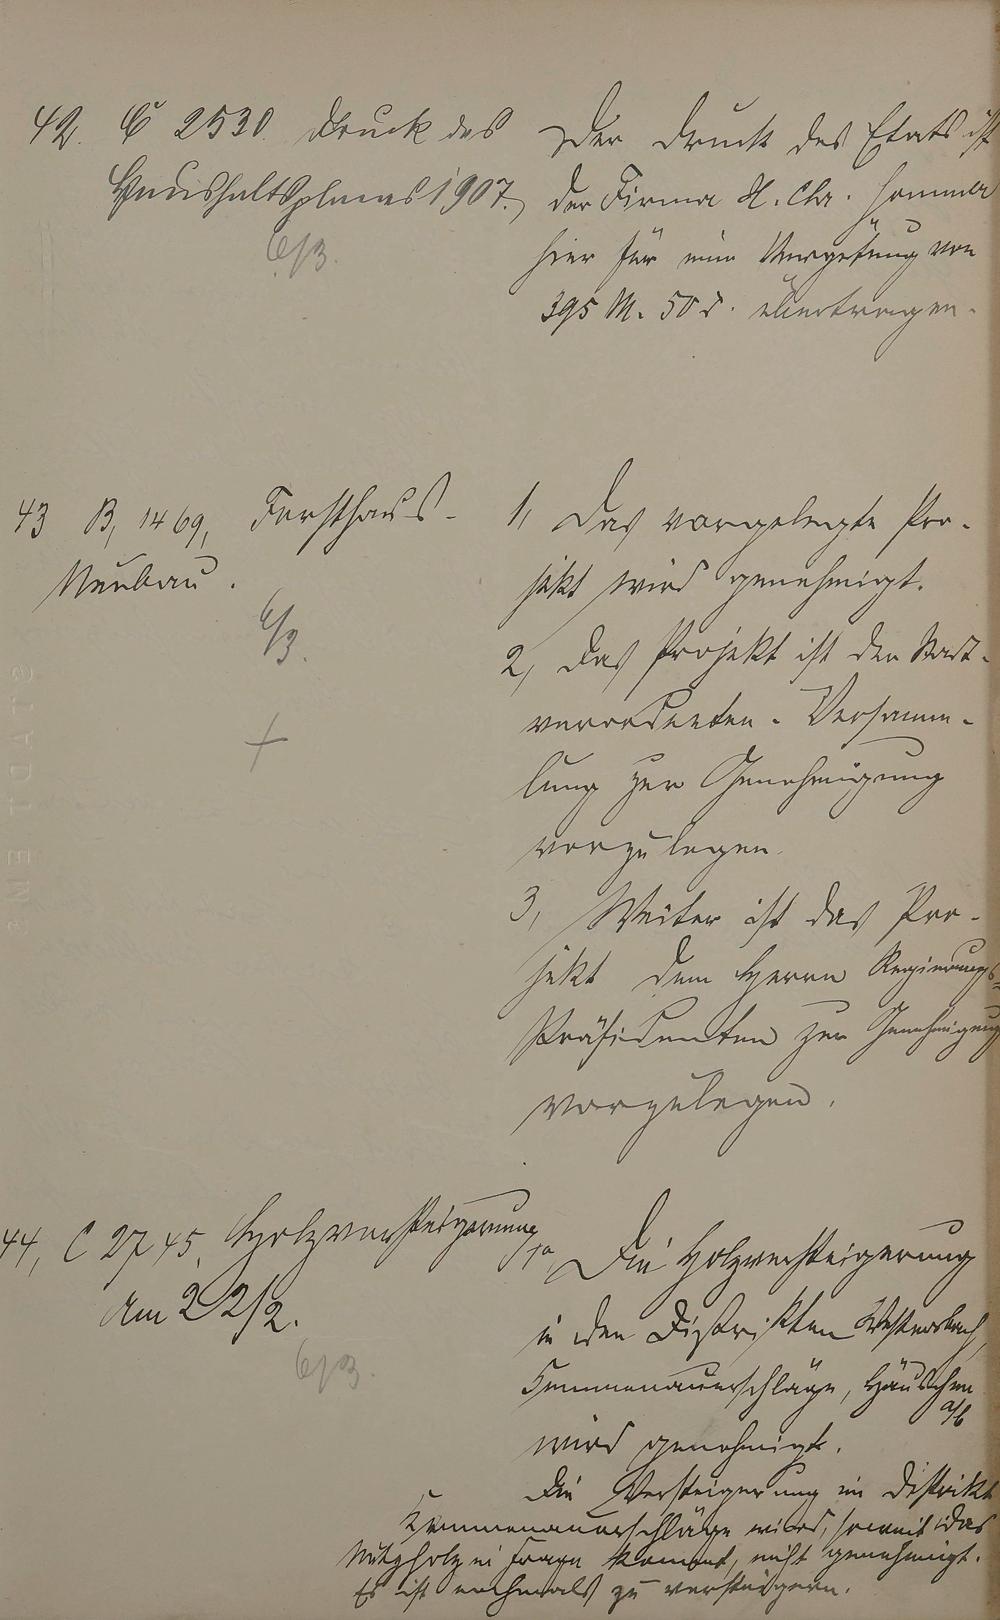 42. C 2530. Druck des
Haushaltsplanes 1907.
6/3.
Der Druck des Etats ist
der Firma H. Chr. Sommer
hier für eine Vergütung von
395 M. 50 d. übertragen.
43 B, 1469, Forsthaus-
Neubau.
6/3.
1, Das vorgelegte Pro-
jekt wird genehmigt.
2, Das Projekt ist der Stadt-
verordneten-Versamm-
lung zur Genehmigung
vorzulegen.
3, Weiter ist das Pro-
jekt dem Herrn Regierungs-
Präsidenten zur Genehmigung
vorzulegen.
44, C 2745, Holzversteigerung
am 22/2.
6/3.
1a, Die Holzversteigerung
in den Distrikten Westersbach,
Hemmenauerschläge, Häuschen
a/b
wird genehmigt.
Die Versteigerung im Distrikt
Hemmenauerschläge wird, soweit das
Nutzholz in Frage kommt, nicht genehmigt.
Es ist nochmals zu versteigern.